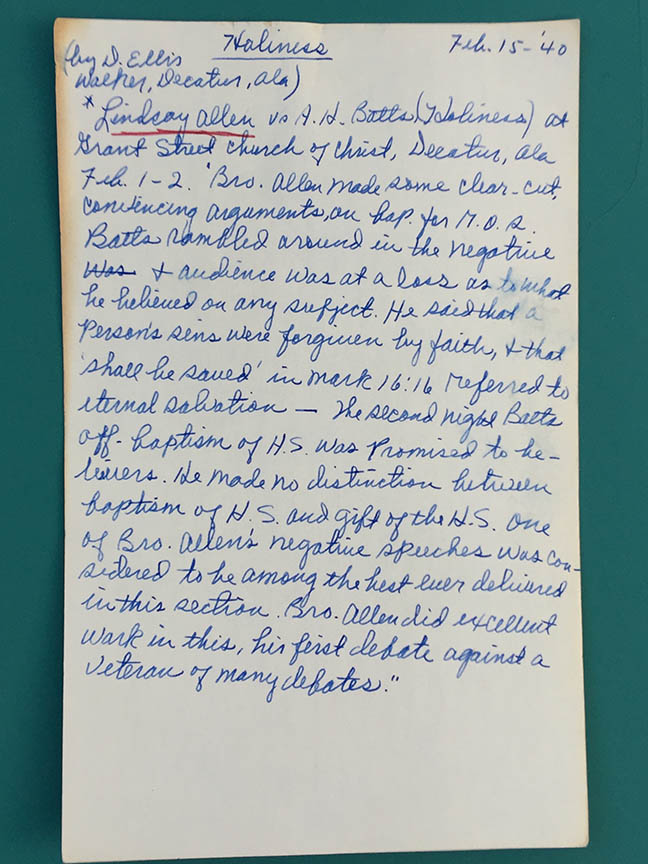 Holiness Feb. 15-'40
(by D. Ellis
Walker, Decatur, Ala)
* Lindsay Allen vs A. H. Batts (Holiness) at
Grant Street church of Christ, Decatur, Ala
Feb. 1-2. "Bro. Allen made some clear-cut,
convincing arguments, on bap. for r. o. s.
Batts rambled around in the negative
was & audience was at a loss as to what
he believed on any subject. He said that a
person's sins were forgiven by faith, & that
'shall be saved' in Mark 16:16 referred to
eternal salvation — The second night Batts
aff. baptism of H.S. was promised to be-
lievers. He made no distinction between
baptism of H.S. and gift of the H.S. One
of Bro. Allen's negative speeches was con-
sidered to be among the best ever delivered
in this section. Bro. Allen did excellent
work in this, his first debate against a
veteran of many debates."